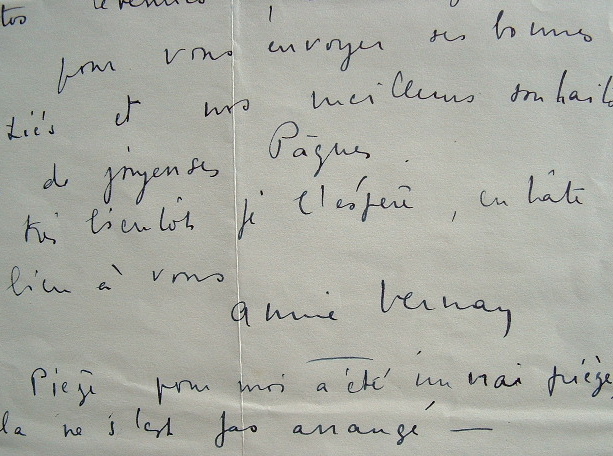 pour vous envoyer ses bonnes
tiés et nos meilleurs souhaits
de joyeuses Pâques.
très bientôt je l'espère, en hâte
bien à vous
Annie Vernay
Piège pour moi a été un vrai piège,
la ne s'est pas arrangé —